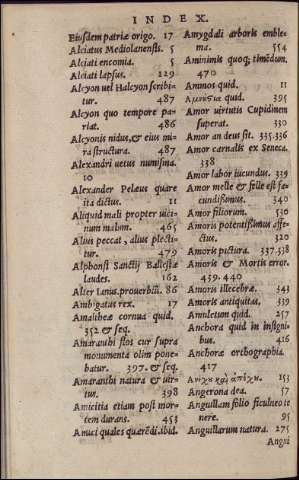 INDEX.
Eiusdem patriæ origo. 17
Alciatus Mediolanensis. 5
Alciati encomia. 5
Alciati lapsus. 229
Alcyon uel Halcyon scribi-
tur. 487
Alcyon quo tempore pa-
riat. 486
Alcyonis nidus, & eius mi-
ra structura. 487
Alexandri uetus numisma.
10
Alexander Peleus quare
ita dictus. 11
Aliquid mali propter uici-
num malum. 465
Alius peccat, alius plecti-
tur. 479
Alphonsi Sanctij Ballestæ
laudes. 162
Alter Ianus, prouerbiũ. 86
Ambigatus rex. 17
Amaltheæ cornua quid.
352 & seq.
Amaranthi flos cur supra
monumenta olim pone-
batur. 397. & seq.
Amaranthi natura & uir-
tus. 398
Amicitia etiam post mor-
tem durans. 453
Amici quales quærẽdi. ibid.
Amygdali arboris emble-
ma. 554
A minimis quoq; timẽdum.
470
Ammos quid. 11
quid. 395
Amor uirtutis Cupidinem
superat. 330
Amor an deus sit. 335.336
Amor carnalis ex Seneca.
338
Amor labor iucundus. 339
Amor melle & felle est fœ-
cundissimus. 340
Amor filiorum. 530
Amoris potentissimus affe-
ctus. 320
Amoris pictura. 337.338
Amoris & Mortis error.
439.440
Amoris illecebræ. 343
Amoris antiquitas. 339
Amuletum quid. 257
Anchora quid in insigni-
bus. 416
Anchoræ orthographia.
417
καὶ 153
Angerona dea. 57
Anguillam folio ficulneo te
nere. 95
Anguillarum natura. 275
Angui